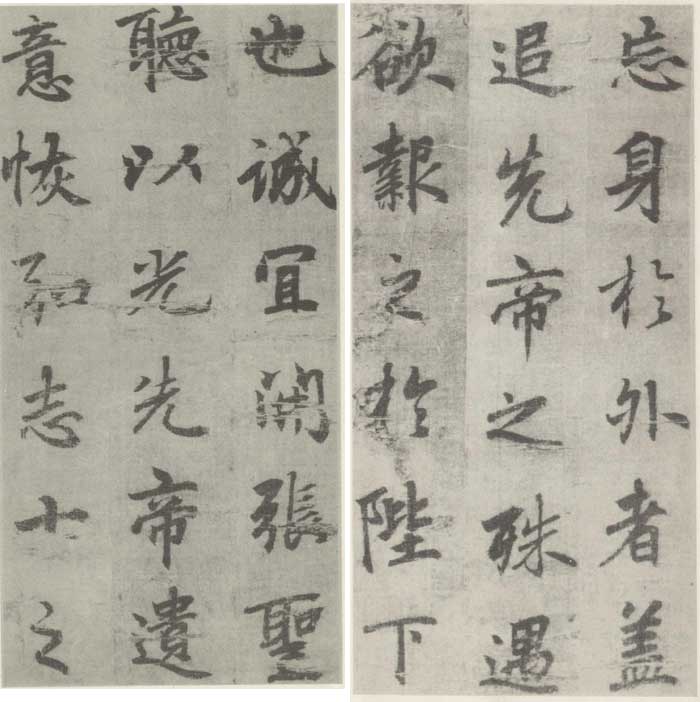 忘身於外者盖
追先帝之殊遇
欲報之於陛下
也誠宜開張聖
聽以光先帝遺
意恢弘志士之